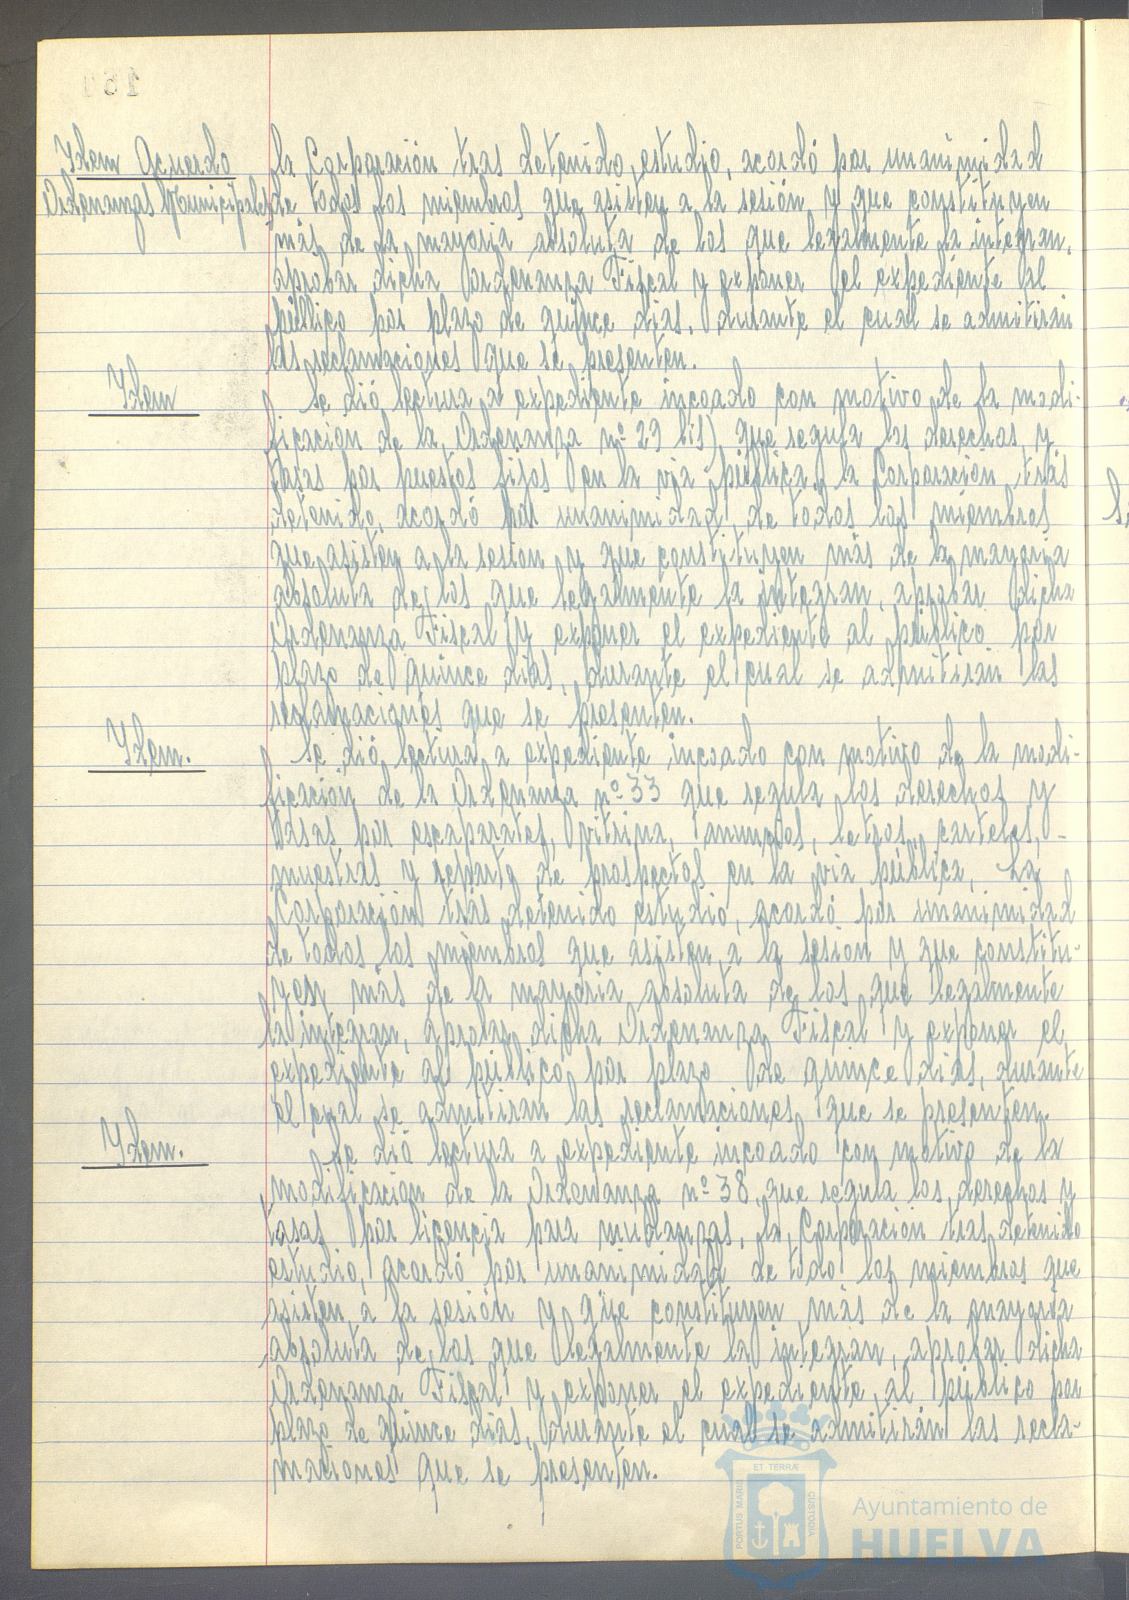 Idem Acuerdo
Ordenanzas Municipales
la Corporación tras detenido estudio, acordó por unanimidad
de todos los miembros que asisten a la sesión y que constituyen
más de la mayoría absoluta de los que legalmente la integran,
aprobar dicha Ordenanza Fiscal y exponer el expediente al
público por plazo de quince dias, durante el cual se admitirán
las reclamaciones que se presenten.
Idem
Se dió lectura a expediente incoado con motivo de la modi-
ficación de la Ordenanza nº 29 bis) que regula los derechos y
tasas por puestos fijos en la via pública, la Corporación trás
detenido, acordó por unanimidad, de todos los miembros
que asisten a la sesion y que constituyen más de la mayoría
absoluta de los que legalmente la integran, aprobar dicha
Ordenanza Fiscal y exponer el expediente al público por
plazo de quince dias, durante el cual se admitirán las
reclamaciones que se presenten.
Idem.
Se dió lectura a expediente incoado con motivo de la modi-
ficación de la Ordenanza nº 33 que regula los derechos y
tasas por escaparates, vitrina, anuncios, letros, carteles, -
muestras y reparto de prospectos en la via pública, La
Corporación trás detenido estudio, acordó por unanimidad
de todos los miembros que asisten a la sesion y que constitu-
yen más de la mayoria absoluta de los que legalmente
la integran, aprobar dicha Ordenanza Fiscal y exponer el
expediente al público por plazo de quince dias, durante
el cual se admitiran las reclamaciones que se presenten.
Idem.
Se dió lectura a expediente incoado con motivo de la
modificacion de la Ordenanza nº 38, que regula los derechos y
tasas por licencia para mudanzas, la Corporación tras detenido
estudio, acordó por unanimidad de todo los miembros que
asisten a la sesión y que constituyen más de la mayoría
absoluta de los que legalmente la integran, aprobar dicha
Ordenanza Fiscal y exponer el expediente al público por
plazo de quince dias, durante el cual se admitirán las recla-
maciones que se presenten.
ET TERRÆ
PORTUS MARIS
CUSTODIA
Ayuntamiento de
HUELVA